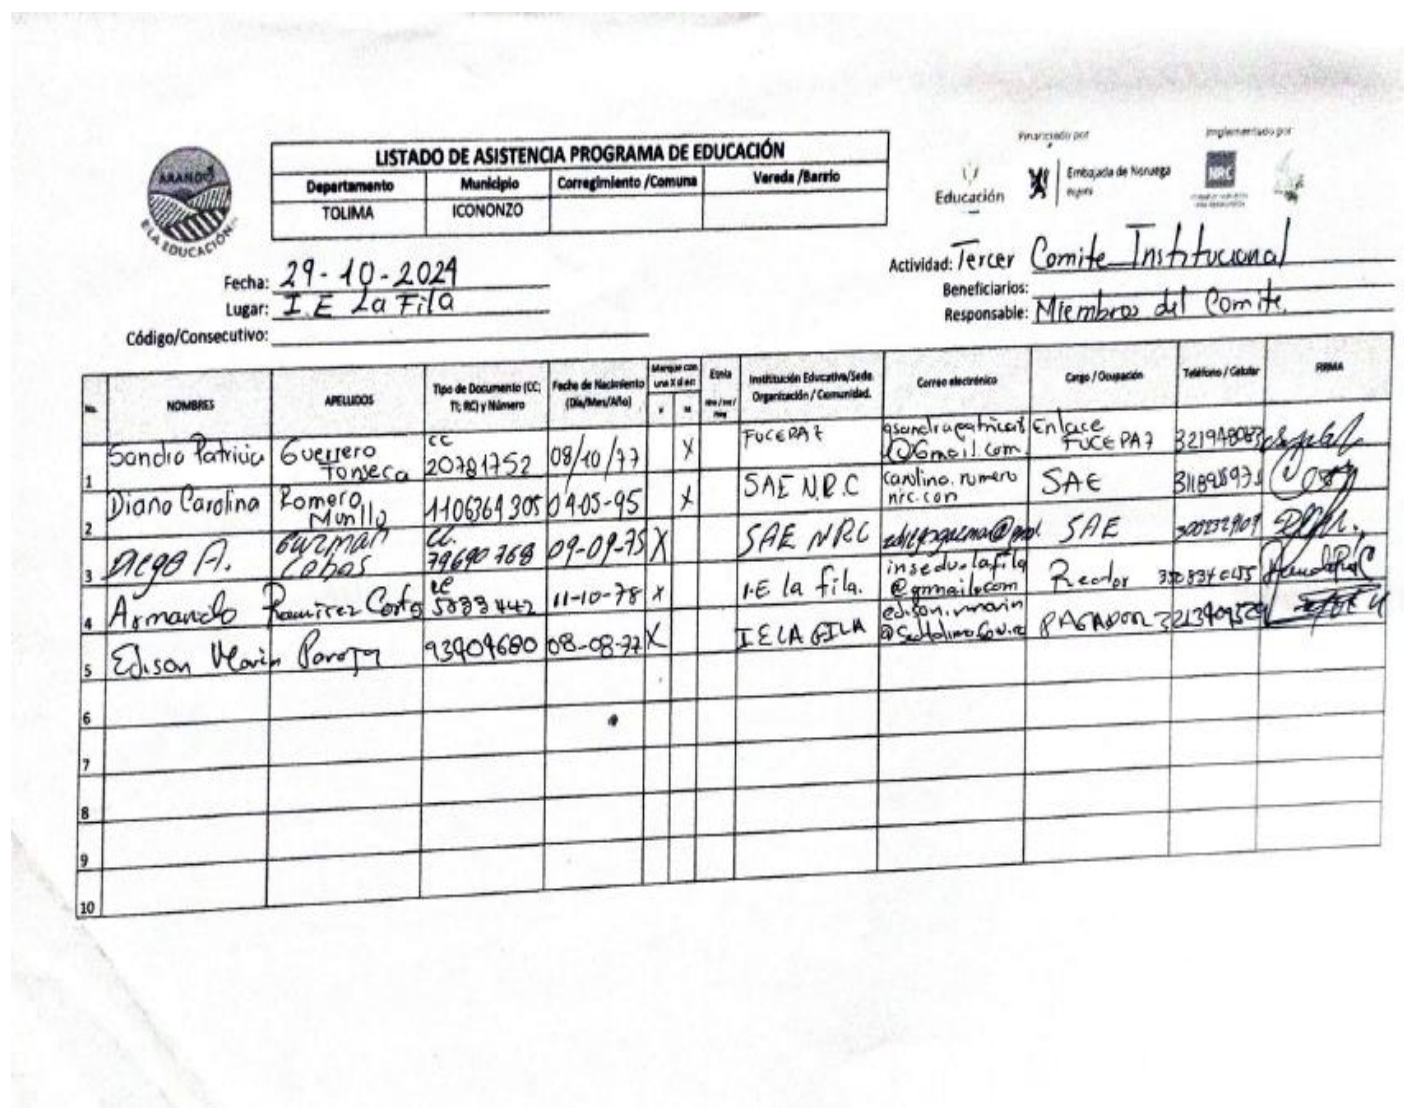 Financiado por
Implementado por
ARANDO
LA EDUCACIÓN
LISTADO DE ASISTENCIA PROGRAMA DE EDUCACIÓN
Departamento Municipio Corregimiento /Comuna Vereda /Barrio
TOLIMA ICONONZO
Educación
Embajada de Noruega
NRC
Fecha: 29-10-2024
Lugar: I.E La Fila
Código/Consecutivo:
Actividad: Tercer Comite Institucional
Beneficiarios:
Responsable: Miembros del Comite.
No. NOMBRES APELLIDOS Tipo de Documento (CC; TI; RC) y Número Fecha de Nacimiento (Día/Mes/Año) Marque con una X si es: Etnia Institución Educativa/Sede Organización / Comunidad. Correo electrónico Cargo / Ocupación Teléfono / Celular FIRMA
1 Sandra Patricia Guerrero Fonseca CC 20781752 08/10/77 X FUCEPAZ @Gmail.com Enlace FUCEPAZ
2 Diana Carolina Romero Munllo 1106364305 04-05-95 X SAE NRC carolina.romero nrc.con SAE
3 Diego A. Guzman Cobos CC. 79690768 09-09-75 X SAE NRC SAE
4 Armando Ramirez 11-10-78 X I.E la fila. insedu.lafila @gmail.com Rector
5 Edison Marin 93404680 08-08-77 X IE LA FILA edison.marin PAGADOR
6
7
8
9
10